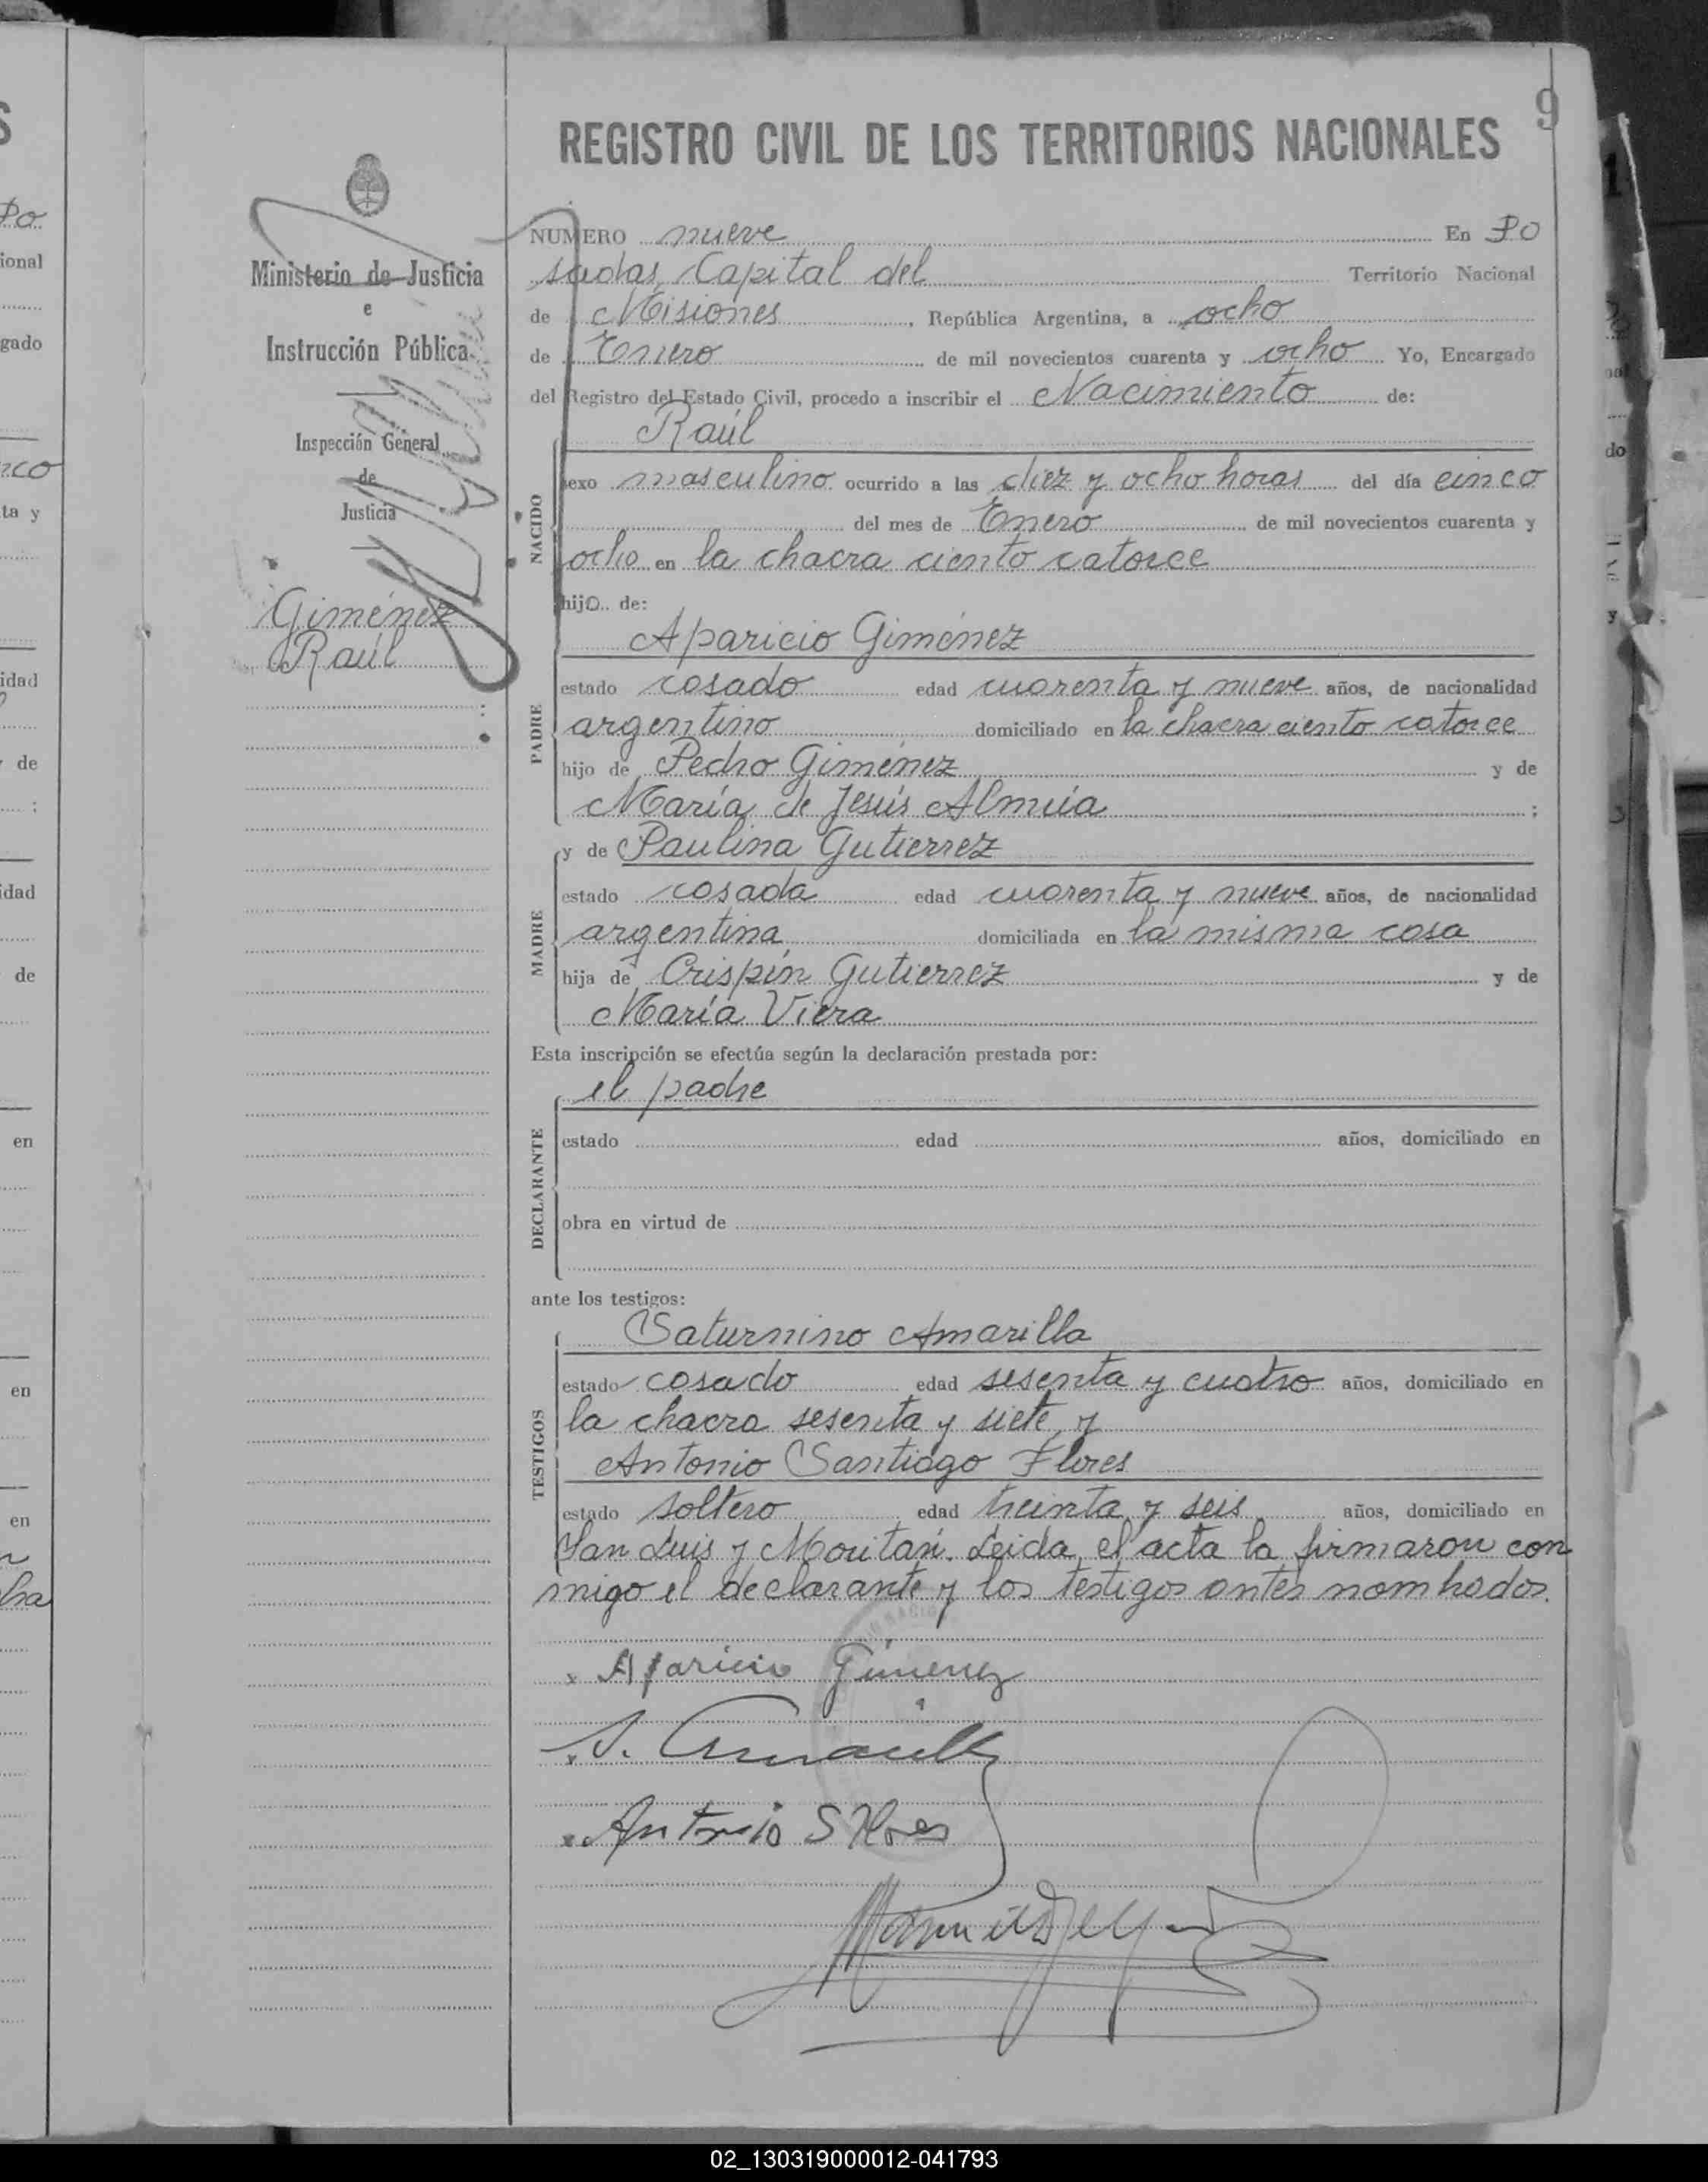 9
REGISTRO CIVIL DE LOS TERRITORIOS NACIONALES
Ministerio de Justicia
e
Instrucción Pública
Inspección General
de
Justicia
Giménez
Raúl
NUMERO nueve En Po
sadas, Capital del Territorio Nacional
de Misiones, República Argentina, a ocho
de Enero de mil novecientos cuarenta y ocho Yo, Encargado
del Registro del Estado Civil, procedo a inscribir el Nacimiento de:
Raúl
NACIDO
sexo masculino ocurrido a las diez y ocho horas del día cinco
del mes de Enero de mil novecientos cuarenta y
ocho en la chacra ciento catorce
hijo de:
Aparicio Giménez
PADRE
estado casado edad cuarenta y nueve años, de nacionalidad
argentino domiciliado en la chacra ciento catorce
hijo de Pedro Giménez y de
María de Jesús Almúa ;
y de Paulina Gutierrez
MADRE
estado casada edad cuarenta y nueve años, de nacionalidad
argentina domiciliada en la misma casa
hija de Crispín Gutierrez y de
María Viera
Esta inscripción se efectúa según la declaración prestada por:
el padre
DECLARANTE
estado edad años, domiciliado en
obra en virtud de
ante los testigos:
Saturnino Amarilla
TESTIGOS
estado casado edad sesenta y cuatro años, domiciliado en
la chacra sesenta y siete y
Antonio Santiago Flores
estado soltero edad treinta y seis años, domiciliado en
San Luis y Moritán. Leida el acta la firmaron con
migo el declarante y los testigos antes nombrados.
x Aparicio Gimenez
x S. Amarilla
x Antonio S Flores
02_130319000012-041793